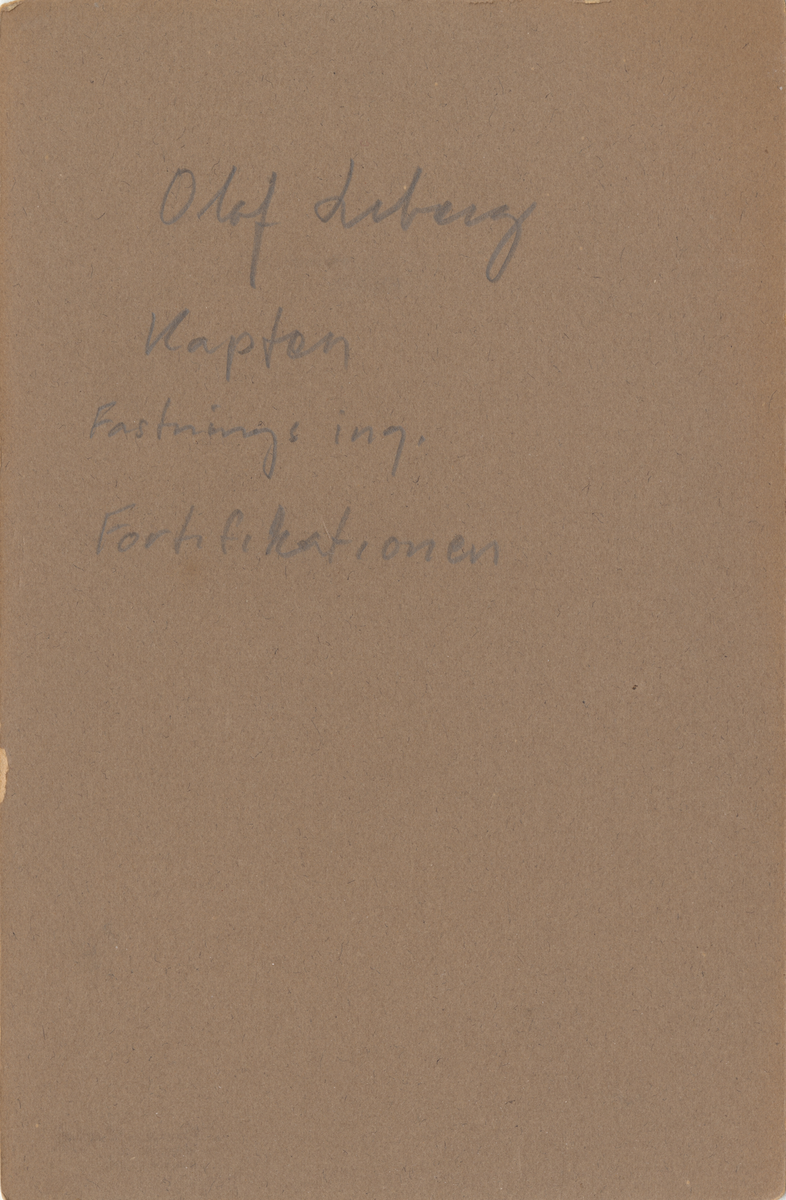 Olof Liberg
Kapten
Fästnings ing.
Fortifikationen